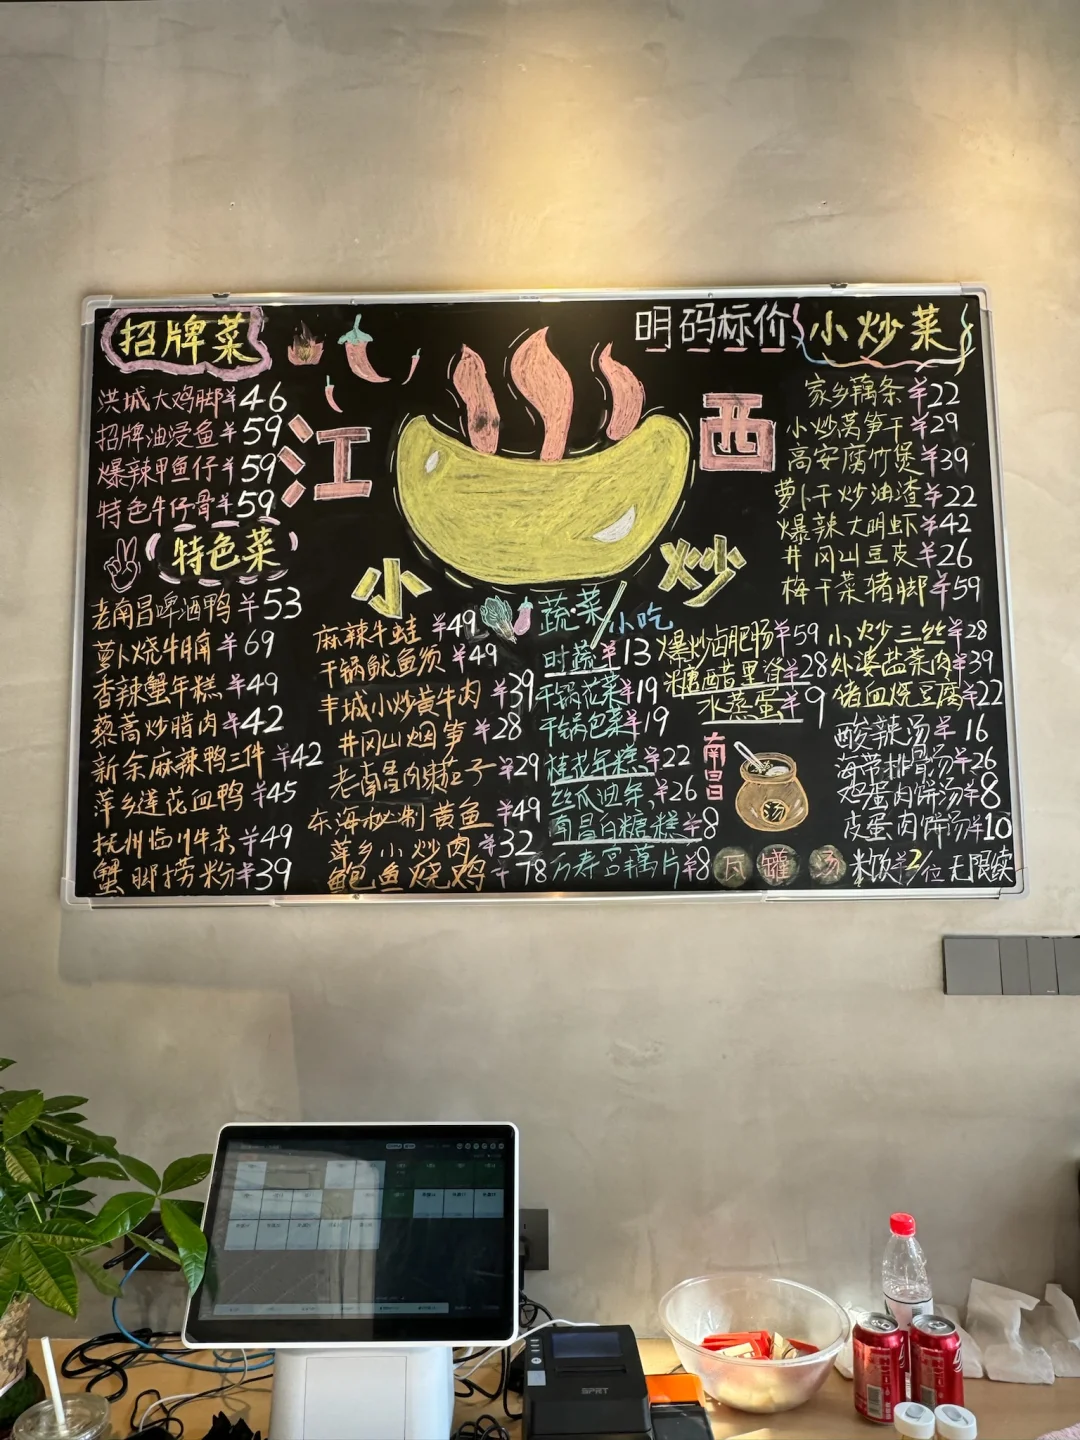 招牌菜
洪城大鸡脚¥46
招牌油浸鱼¥59
爆辣甲鱼仔¥59
特色牛仔骨¥59
特色菜
老南昌啤酒鸭¥53
萝卜烧牛腩¥69
香辣蟹年糕¥49
藜蒿炒腊肉¥42
新余麻辣鸭三件¥42
萍乡莲花血鸭¥45
抚州临川牛杂¥49
蟹脚捞粉¥39
江西
小炒
麻辣牛蛙¥49
干锅鱿鱼须¥49
丰城小炒黄牛肉¥39
井冈山烟笋¥28
老南昌肉
¥29
东海秘制黄鱼¥49
萍乡小炒肉¥32
鲍鱼烧鸡¥78
蔬菜/小吃
时蔬¥13
干锅花菜¥19
干锅包菜¥19
桂花年糕¥22
丝瓜油条¥26
南昌白糖糕¥8
万寿宫藕片¥8
明码标价
小炒菜
家乡藕条¥22
小炒莴笋干¥29
高安腐竹煲¥39
萝卜干炒油渣¥22
爆辣大明虾¥42
井冈山豆皮¥26
梅干菜猪脚¥59
爆炒卤肥肠¥59
糖醋里脊¥28
水蒸蛋¥9
小炒三丝¥28
外婆盐菜肉¥39
猪血烧豆腐¥22
南昌
汤
瓦罐汤
酸辣汤¥16
海带排骨汤¥26
鸡蛋肉饼汤¥8
皮蛋肉饼汤¥10
米饭¥2/位无限续
SPRT